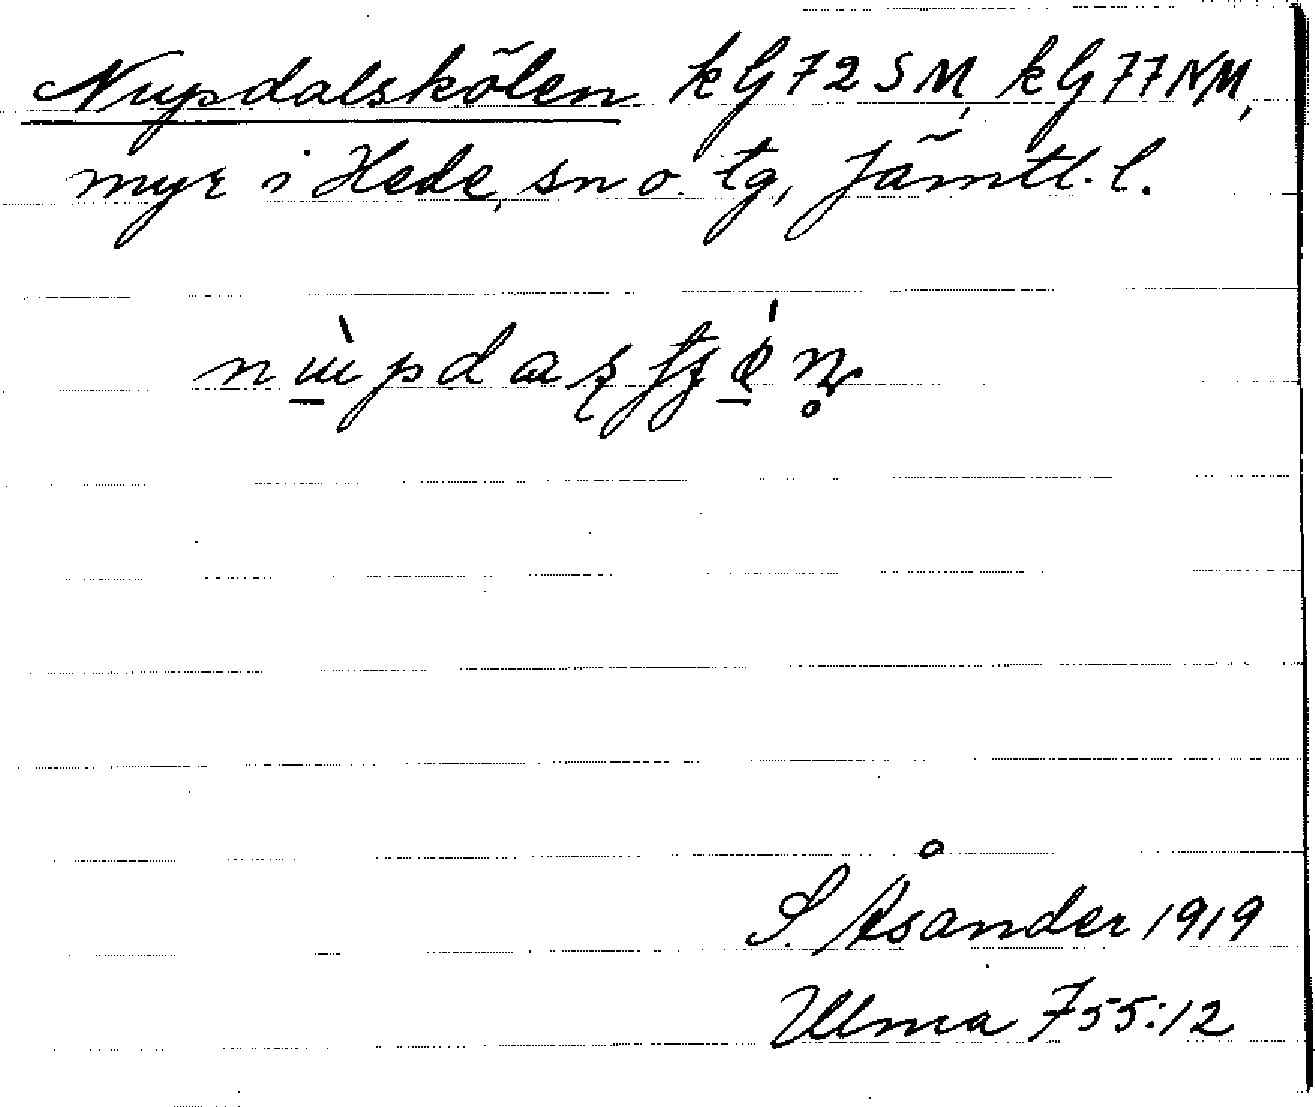 Nupdalskölen kG72SM, kG77NM,
myr i Hede, sn o. tg, Jämtl. l.
S. Åsander 1919
Ulma 755:12